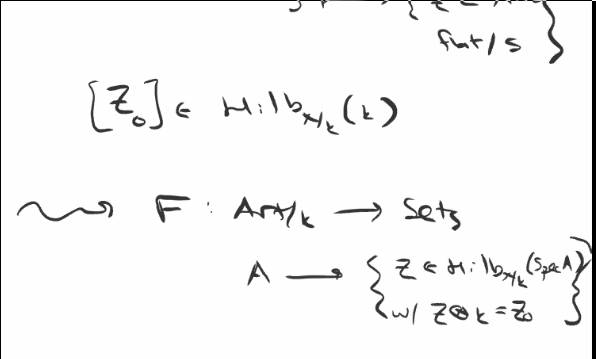 flat/s
[Z₀] ∈ Hilb_{X/k}(k)
⇝ F : Art/k → Sets
A → { Z ∈ Hilb_{X/k}(Spec A)
w/ Z⊗k = Z₀ }